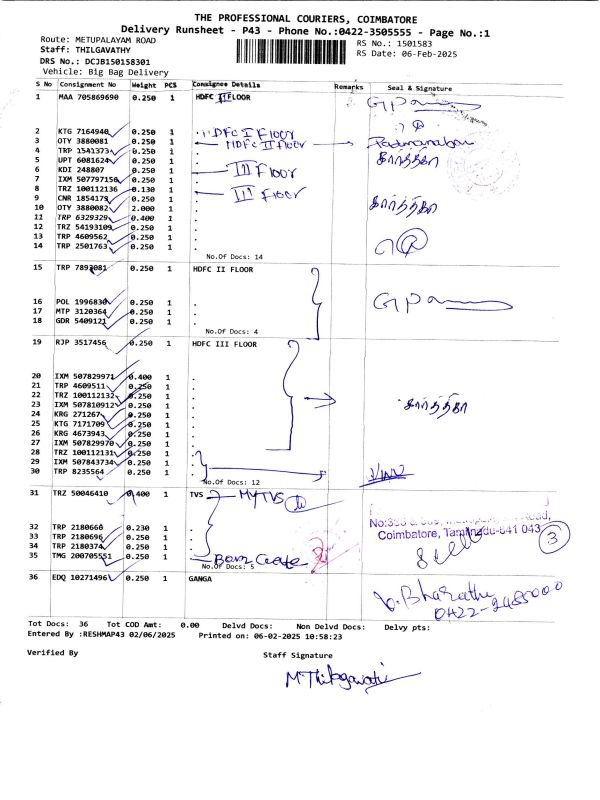 THE PROFESSIONAL COURIERS, COIMBATORE
Delivery Runsheet - P43 - Phone No.:0422-3505555 - Page No.:1
Route: METUPALAYAM ROAD RS No.: 1501583
Staff: THILGAVATHY RS Date: 06-Feb-2025
DRS No.: DCJB150158301
Vehicle: Big Bag Delivery
S No Consignment No Weight PCS Consignee Details Remarks Seal & Signature
1 MAA 705869690 0.250 1 HDFC II FLOOR
2 KTG 7164940 0.250 1 . HDFC I Floor
3 OTY 3880081 0.250 1 . HDFC II Floor Padmanaban
4 TRP 1541373 0.250 1 .
5 UPT 6081624 0.250 1 . கார்த்திகா
6 KDI 248807 0.250 1 . III Floor
7 IXM 507797156 0.250 1 .
8 TRZ 100112136 0.130 1 . III Floor
9 CNR 1854179 0.250 1 .
10 OTY 3880082 2.000 1 . கார்த்திகா
11 TRP 6329329 0.400 1 .
12 TRZ 54193109 0.250 1 .
13 TRP 4609562 0.250 1 .
14 TRP 2501763 0.250 1 .
No.Of Docs: 14
15 TRP 7893081 0.250 1 HDFC II FLOOR
16 POL 1996830 0.250 1 .
17 MTP 3120364 0.250 1 .
18 GDR 5409121 0.250 1 .
No.Of Docs: 4
19 RJP 3517456 0.250 1 HDFC III FLOOR
20 IXM 507829971 0.400 1 .
21 TRP 4609511 0.250 1 .
22 TRZ 100112132 0.250 1 .
23 IXM 507810912 0.250 1 . கார்த்திகா
24 KRG 271267 0.250 1 .
25 KTG 7171709 0.250 1 .
26 KRG 4673943 0.250 1 .
27 IXM 507829970 0.250 1 .
28 TRZ 100112131 0.250 1 .
29 IXM 507843734 0.250 1 .
30 TRP 8235564 0.250 1 .
No.Of Docs: 12
31 TRZ 50046410 0.400 1 TVS MyTVS
Coimbatore, Tamilnadu-641 043
32 TRP 2180660 0.230 1 .
33 TRP 2180696 0.250 1 .
34 TRP 2180374 0.250 1 . 3
35 TMG 200705551 0.250 1 .
No.Of Docs: 5
36 EDQ 10271496 0.250 1 GANGA
Bharathi
Tot Docs: 36 Tot COD Amt: 0.00 Delvd Docs: Non Delvd Docs: Delvy pts:
Entered By :RESHMAP43 02/06/2025 Printed on: 06-02-2025 10:58:23
Verified By Staff Signature
M.Thilagavathi